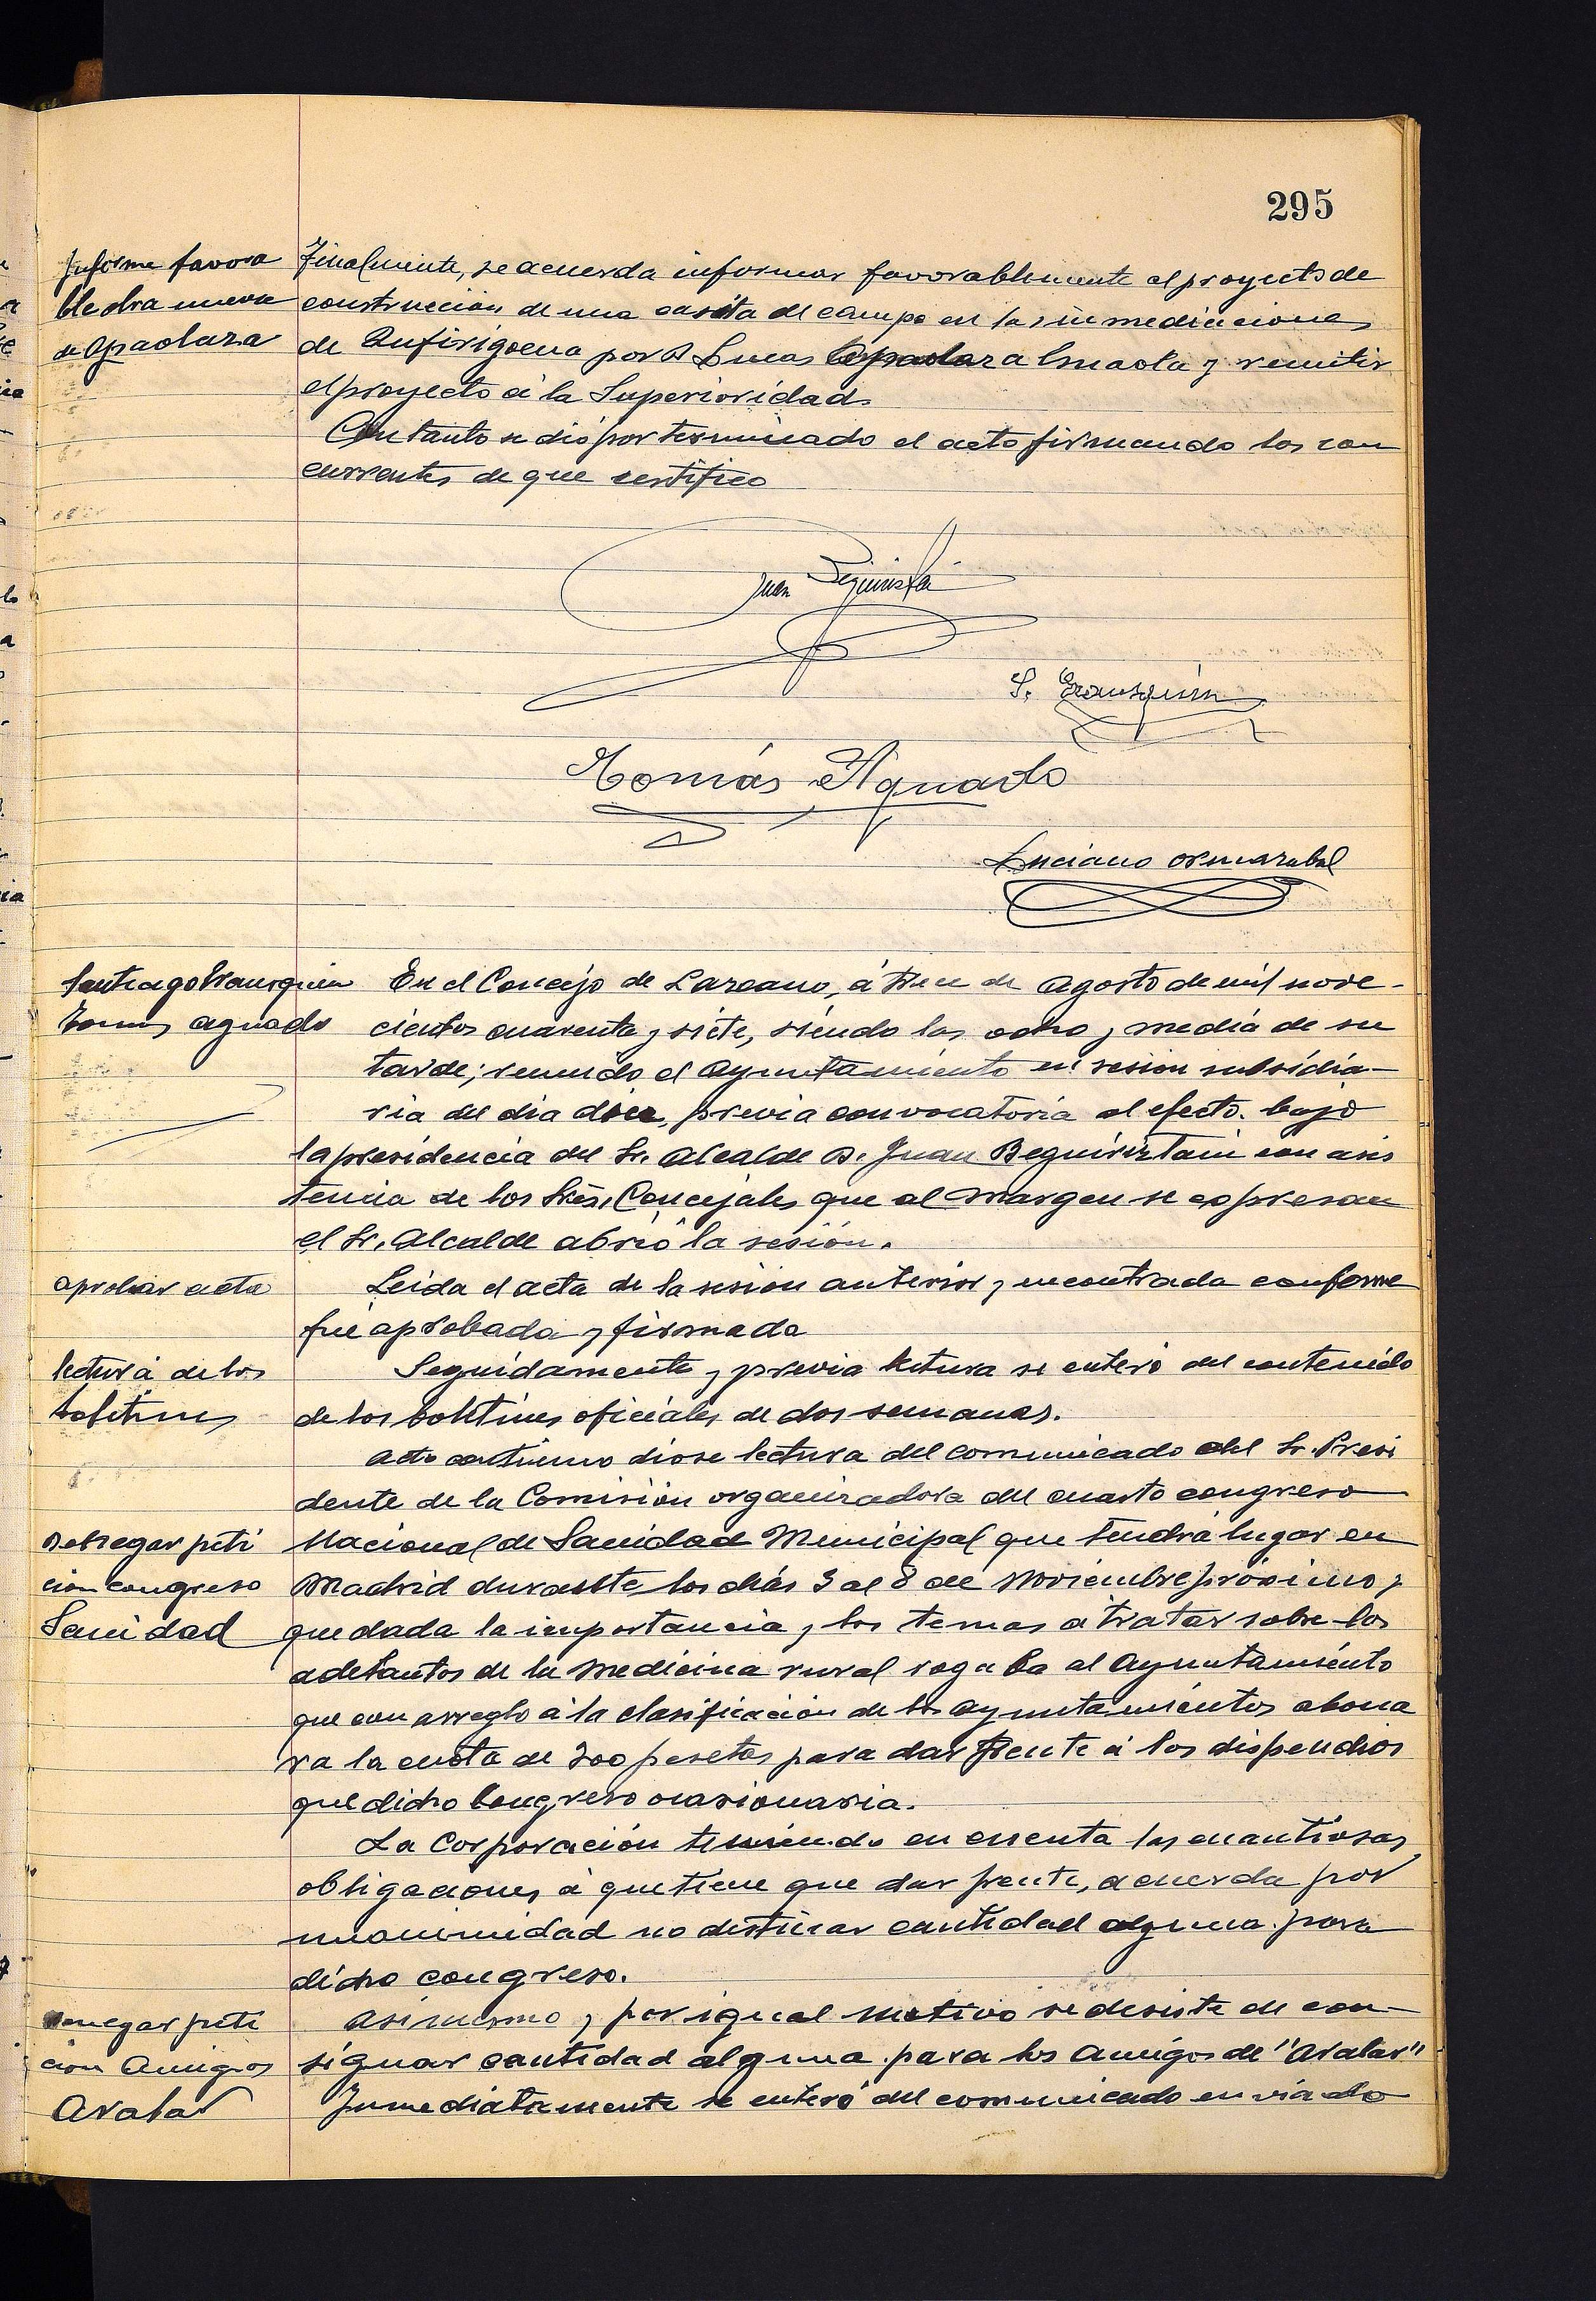 295
Informe favora
ble obra nueva
de Apaolaza
Finalmente, se acuerda informar favorablemente el proyecto de
construccion de una casita de campo en las inmediaciones
de por D Lucas Apaolaza y remitir
el proyecto á la Superioridad.
Con tanto se dió por terminado el acto firmando los con
currentes de que certifico
Juan
S. Erausquin
Tomás Aguado
Luciano Ormazabal
Santiago Erausquin
Tomas aguado
En el Concejo de Lazcano, á trece de Agosto de mil nove-
cientos cuarenta y siete, siendo las ocho y media de su
tarde; reunido el Ayuntamiento en sesion subsidia-
ria del dia doce, previa convocatoria al efecto. bajo
la presidencia del Sr. Alcalde D. Juan Beguiriztain con asis
tencia de los Sres. Concejales que al margen se expresan
el Sr. Alcalde abrió la sesión.
aprobar acta
Leida el acta de la sesion anterior y encontrada conforme
fue aprobada y firmada
lectura de los
boletines
Seguidamente y previa lectura se enteró del contenido
de los boletines oficiales de dos semanas.
acto continuo diose lectura del comunicado del Sr. Presi
dente de la Comisión organizadora del cuarto congreso
denegar peti
cion congreso
Sanidad
Nacional de Sanidad Municipal que tendrá lugar en
Madrid durante los diás 3 al 8 de Noviembre próximo y
que dada la importancia y los temas a tratar sobre los
adelantos de la medicina rural rogaba al Ayuntamiento
que con arreglo à la clasificación de los ayuntamientos abona
ra la cuota de 300 pesetas para dar frente à los dispendios
que dicho Congreso ocasionaria.
La Corporación teniendo en cuenta las cuantiosas
obligaciones à que tiene que dar frente, acuerda por
unanimidad no destinar cantidad alguna para
dicho congreso.
denegar peti
cion Amigos
Aralar
Asimismo y por igual motivo se desiste de con-
signar cantidad alguna para los Amigos de "Aralar"
Inmediatamente se enteró del comunicado enviado